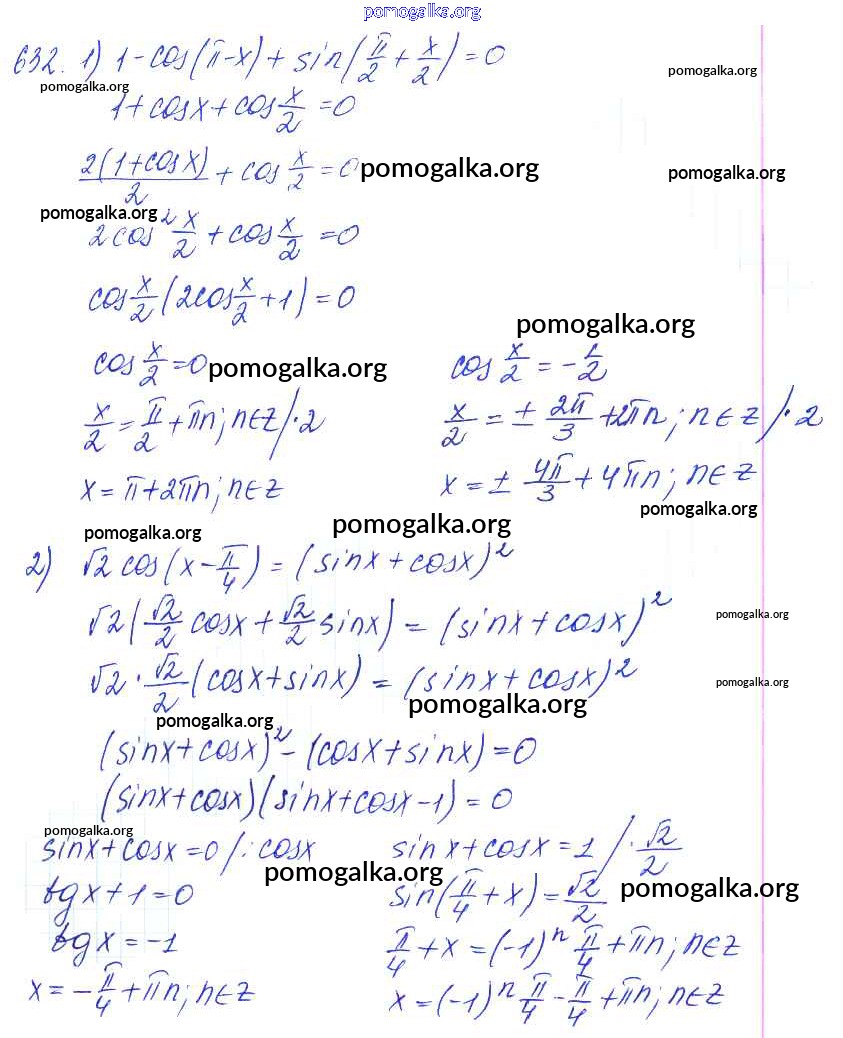 pomogalka.org
632. 1) 1-cos(π-x)+sin(π/2+x/2)=0
pomogalka.org
pomogalka.org
1+cosx+cos x/2=0
2(1+cosx)/2+cos x/2=0
pomogalka.org
pomogalka.org
pomogalka.org
2cos² x/2+cos x/2=0
cos x/2(2cos x/2+1)=0
pomogalka.org
cos x/2=0 cos x/2=-1/2
pomogalka.org
x/2=π/2+πn; n∈Z/·2 x/2=±2π/3+2πn; n∈Z/·2
x=π+2πn; n∈Z x=±4π/3+4πn; n∈Z
pomogalka.org
pomogalka.org
pomogalka.org
2) √2cos(x-π/4)=(sinx+cosx)²
√2(√2/2 cosx+√2/2 sinx)=(sinx+cosx)²
pomogalka.org
√2·√2/2(cosx+sinx)=(sinx+cosx)²
pomogalka.org
pomogalka.org
pomogalka.org
(sinx+cosx)²-(cosx+sinx)=0
(sinx+cosx)(sinx+cosx-1)=0
pomogalka.org
sinx+cosx=0/:cosx sinx+cosx=1/·√2/2
pomogalka.org
tgx+1=0 sin(π/4+x)=√2/2
pomogalka.org
tgx=-1 π/4+x=(-1)ⁿπ/4+πn; n∈Z
x=-π/4+πn; n∈Z x=(-1)ⁿπ/4-π/4+πn; n∈Z